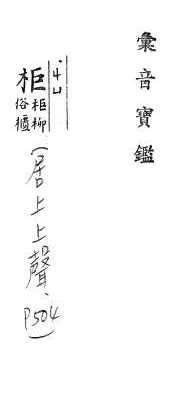 彙音寶鑑
柜
柜柳
俗櫃
(居上上聲、P504)